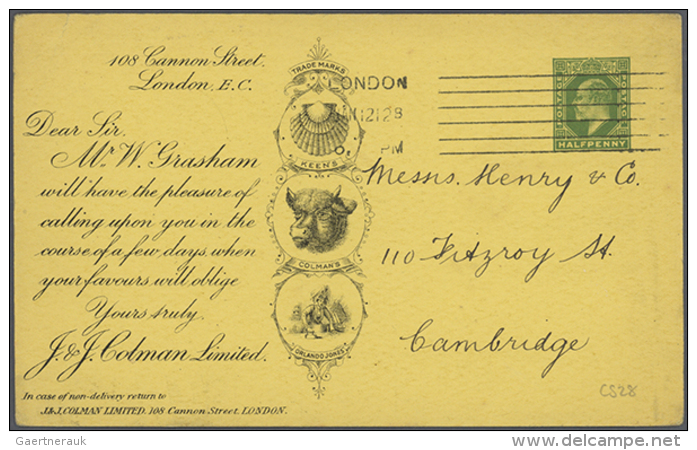 108 Cannon Street.
London, E.C.
Dear Sir,
Mr. W. Grasham
will have the pleasure of
calling upon you in the
course of a few days, when
your favours will oblige
Yours truly,
J. & J. Colman Limited.
In case of non-delivery return to
J.& J. COLMAN LIMITED, 108 Cannon Street, LONDON.
TRADE MARKS
KEEN'S
COLMAN'S
ORLANDO JONES
LONDON
PM
POSTAGE
HALFPENNY
Messrs. Henry & Co.
110 Fitzroy St.
Cambridge
CS28
Gaertnerauk
www.delcampe.net